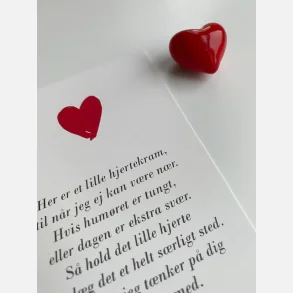 Her er et lille hjertekram,
til når jeg ej kan være nær.
Hvis humøret er tungt,
eller dagen er ekstra svær.
Så hold det lille hjerte
læg det et helt særligt sted.
jeg tænker på dig
med.